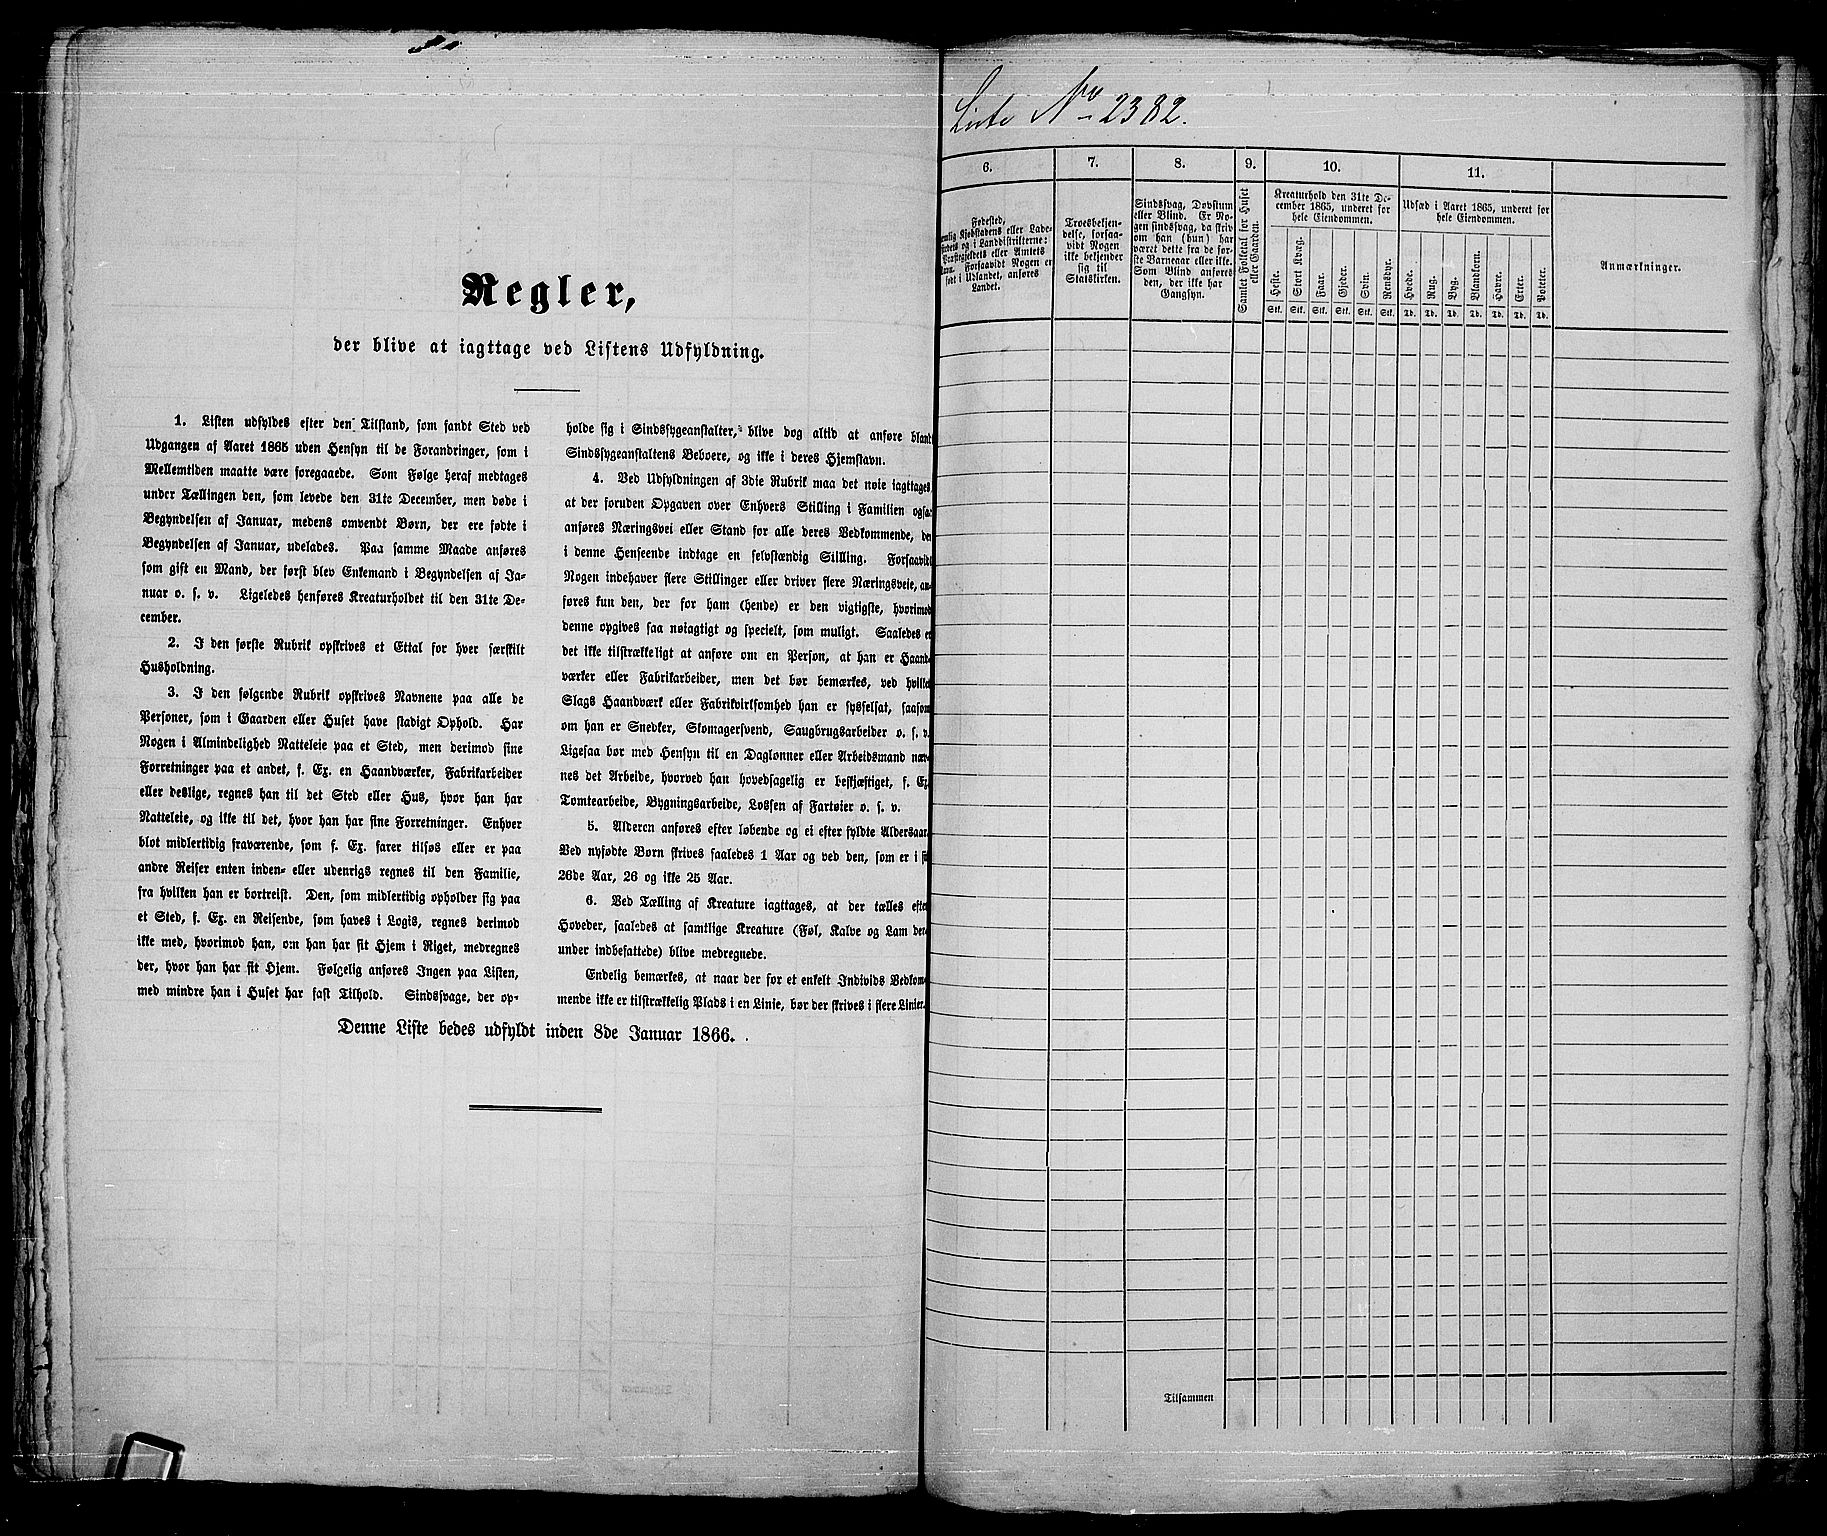 Regler,
der blive at iagttage ved Listens Udfyldning.
1. Listen udfyldes efter den Tilstand, som fandt Sted ved
Udgangen af Aaret 1865 uden Hensyn til de Forandringer, som i
Mellemtiden maatte være foregaaede. Som Følge heraf medtages
under Tællingen den, som levede den 31te December, men døde i
Begyndelsen af Januar, medens omvendt Børn, der ere fødte i
Begyndelsen af Januar, udelades. Paa samme Maade anføres
som gift en Mand, der først blev Enkemand i Begyndelsen af Ja-
nuar o. s. v. Ligeledes henføres Kreaturholdet til den 31te De-
cember.
2. I den første Rubrik opskrives et Ettal for hver særskilt
Husholdning.
3. I den følgende Rubrik opskrives Navnene paa alle de
Personer, som i Gaarden eller Huset have stadigt Ophold. Har
Nogen i Almindelighed Natteleie paa et Sted, men derimod sine
Forretninger paa et andet, f. Ex. en Haandværker, Fabrikarbeider
eller deslige, regnes han til det Sted eller Hus, hvor han har
Natteleie, og ikke til det, hvor han har sine Forretninger. Enhver
blot midlertidig fraværende, som f. Ex. farer tilsøs eller er paa
andre Reiser enten inden- eller udenrigs regnes til den Familie,
fra hvilken han er bortreist. Den, som midlertidig opholder sig paa
et Sted, f. Ex. en Reisende, som haves i Logis, regnes derimod
ikke med, hvorimod han, om han har sit Hjem i Riget, medregnes
der, hvor han har sit Hjem. Følgelig anføres Ingen paa Listen,
med mindre han i Huset har fast Tilhold. Sindssvage, der op-
holde sig i Sindssygeanstalter, blive dog altid at anføre blandt
Sindssygeanstaltens Beboere, og ikke i deres Hjemstavn.
4. Ved Udfyldningen af 3die Rubrik maa det nøie iagttages,
at der foruden Opgaven over Enhvers Stilling i Familien ogsaa
anføres Næringsvei eller Stand for alle deres Vedkommende, der
i denne Henseende indtage en selvstændig Stilling. Forsaavidt
Nogen indehaver flere Stillinger eller driver flere Næringsveie, an-
føres kun den, der for ham (hende) er den vigtigste, hvorimod
denne opgives saa nøiagtigt og specielt, som muligt. Saaledes er
det ikke tilstrækkeligt at anføre om en Person, at han er Haand-
værker eller Fabrikarbeider, men det bør bemærkes, ved hvilket
Slags Haandværk eller Fabrikvirksomhed han er sysselsat, saasom
om han er Snedker, Skomagersvend, Saugbrugsarbeider o. s. v.
Ligesaa bør med Hensyn til en Daglønner eller Arbeidsmand næv-
nes det Arbeide, hvorved han hovedsagelig er beskjæftiget, f. Ex.
Tomtearbeide, Bygningsarbeide, Lossen af Fartøier o. s. v.
5. Alderen anføres efter løbende og ei efter fyldte Aldersaar.
Ved nyfødte Børn skrives saaledes 1 Aar og ved den, som er i sit
26de Aar, 26 og ikke 25 Aar.
6. Ved Tælling af Kreature iagttages, at der tælles efter
Hoveder, saaledes at samtlige Kreature (Føl, Kalve og Lam der-
under indbefattede) blive medregnede.
Endelig bemærkes, at naar der for et enkelt Individs Vedkom-
mende ikke er tilstrækkelig Plads i en Linie, bør der skrives i flere Linier.
Denne Liste bedes udfyldt inden 8de Januar 1866.
Liste No 2382.
6. 7. 8. 9. 10. 11.
Fødested,
nemlig Kjøbstadens eller Lade-
stedets og i Landdistrikterne:
Præstegjeldets eller Amtets
Navn. Forsaavidt Nogen er
født i Udlandet, anføres
Landet.
Troesbekjen-
delse, forsaa-
vidt Nogen
ikke bekjender
sig til
Statskirken.
Sindssvag, Døvstum
eller Blind. Er No-
gen sindssvag, da skriv
om han (hun) har
været dette fra de før-
ste Barneaar eller ikke.
Som Blind anføres
den, der ikke har
Gangsyn.
Samlet Folketal for Huset
eller Gaarden.
Kreaturhold den 31te De-
cember 1865, underet for
hele Eiendommen.
Heste. Stort Kvæg. Faar. Gjeder. Svin. Rensdyr.
Stk. Stk. Stk. Stk. Stk. Stk.
Udsæd i Aaret 1865, underet for
hele Eiendommen.
Hvede. Rug. Byg. Blandkorn. Havre. Erter. Poteter.
Td. Td. Td. Td. Td. Td. Td.
Anmærkninger.
Tilsammen